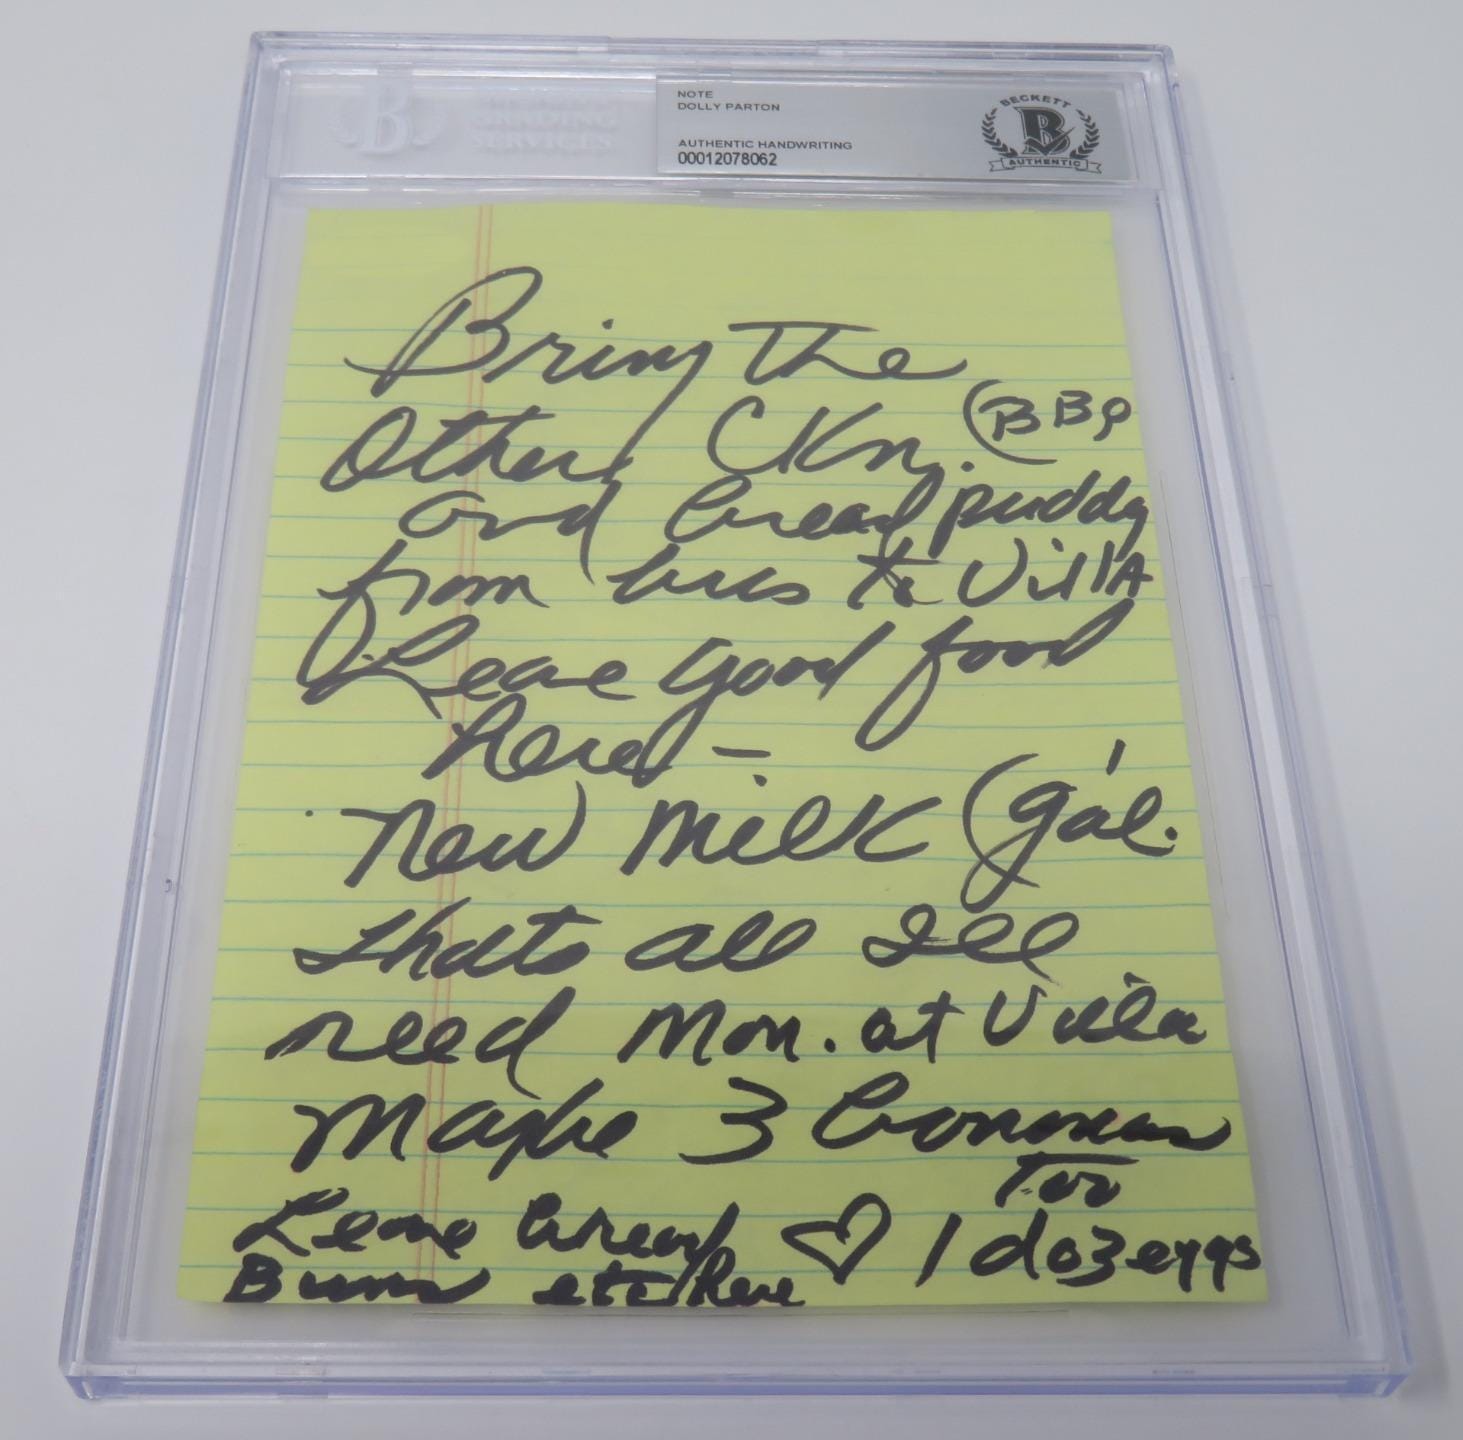 B
GRADING
SERVICES
NOTE
DOLLY PARTON
AUTHENTIC HANDWRITING
00012078062
BECKETT
B
AUTHENTIC
Bring The
Other CKn. (BBQ
and bread puddg
from bus to VillA
Leave good food
here -
New milk (gal.
thats all Ill
need Mon. at Villa
Maybe 3 bananas
Too
Leave bread ♡ 1 doz eggs
Buns etc here